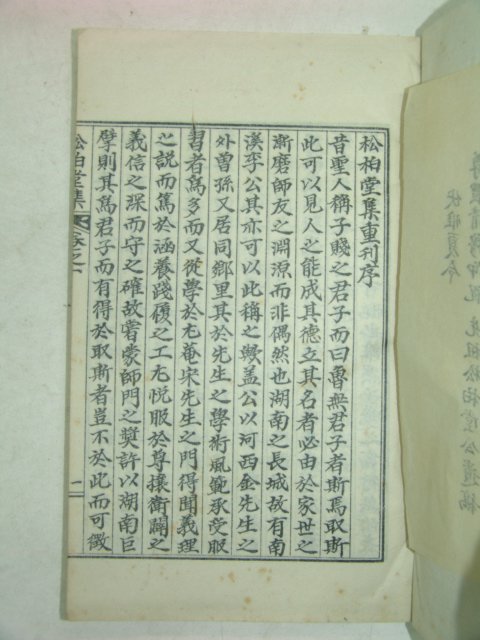 松柏堂集重刊序
昔聖人稱子賤之君子而曰魯無君子者斯焉取斯
此可以見人之能成其德立其名者必由於家世之
漸磨師友之淵源而非偶然也湖南之長城故有南
溪李公其亦可以此稱之歟盖公以河西金先生之
外曾孫又居同鄉里其於先生之學術風範承受服
習者爲多而又從學於尤菴宋先生之門得聞義理
之說而篤於涵養踐履之工尤悅服於尊攘衛闢之
義信之深而守之確故嘗蒙師門之奬許以湖南巨
擘則其爲君子而有得於取斯者豈不於此而可徵
松柏堂集
一